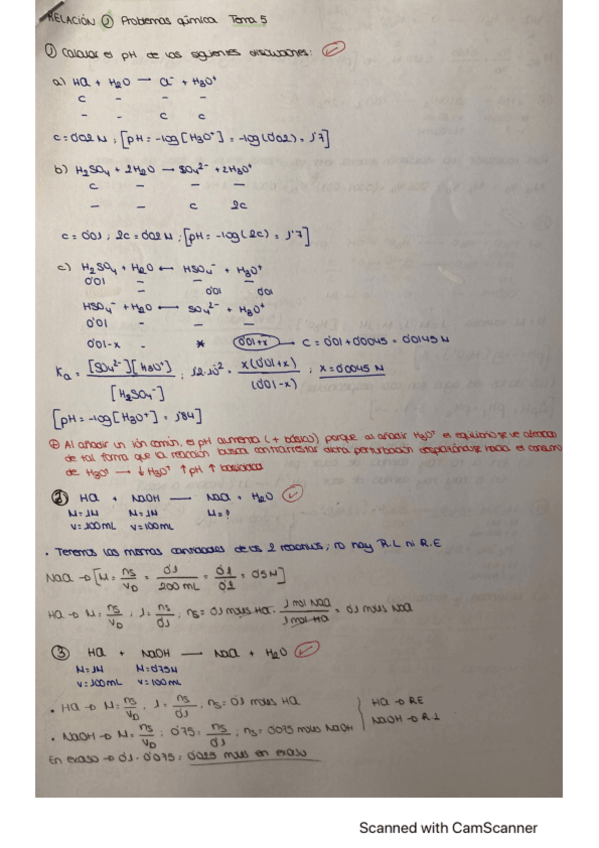 RELACIÓN ① Problemas química Tema 5
① Calcular el pH de las siguientes disoluciones:
a) HCl + H2O → Cl⁻ + H3O⁺
c - - -
- - c c
c = 0'02 M ; [pH = -log [H3O⁺] = -log (0'02) = 1'7]
b) H2SO4 + 2H2O → SO4²⁻ + 2H3O⁺
c - - -
- - c 2c
c = 0'01 ; 2c = 0'02 M ; [pH = -log (2c) = 1'7]
c) H2SO4 + H2O ⟵ HSO4⁻ + H3O⁺
0'01 - - -
- - 0'01 0'01
HSO4⁻ + H2O ⟷ SO4²⁻ + H3O⁺
0'01 - - 
0'01-x - x 0'01+x → c = 0'01 + 0'0045 = 0'0145 M
Ka = [SO4²⁻][H3O⁺] / [HSO4⁻] ; 1'2·10⁻² = x(0'01+x) / (0'01-x) ; x = 0'0045 M
[pH = -log [H3O⁺] = 1'84]
Al añadir un ión común, el pH aumenta (+ básico) porque al añadir H3O⁺ el equilibrio se ve alterado
de tal forma que la reacción busca contrarrestar dicha perturbación desplazándose hacia el consumo
de H3O⁺ → ↓ H3O⁺ ↑ pH ↑ basicidad
② HCl + NaOH → NaCl + H2O
M = 1M M = 1M M = ?
V = 100mL V = 100mL
· Tenemos las mismas cantidades de los 2 reactivos; no hay R.L ni R.E
NaCl → [M = ns/VD = 0'1/200 mL = 0'1/0'2 = 0'5 M]
HCl → M = ns/VD ; 1 = ns/0'1 ; ns = 0'1 moles HCl · 1 mol NaCl / 1 mol HCl = 0'1 moles NaCl
③ HCl + NaOH → NaCl + H2O
M = 1M M = 0'75M
V = 100mL V = 100mL
· HCl → M = ns/VD ; 1 = ns/0'1 ; ns = 0'1 moles HCl HCl → RE
· NaOH → M = ns/VD ; 0'75 = ns/0'1 ; ns = 0'075 moles NaOH NaOH → R.L
En exceso → 0'1 - 0'075 = 0'025 moles en exceso
Scanned with CamScanner